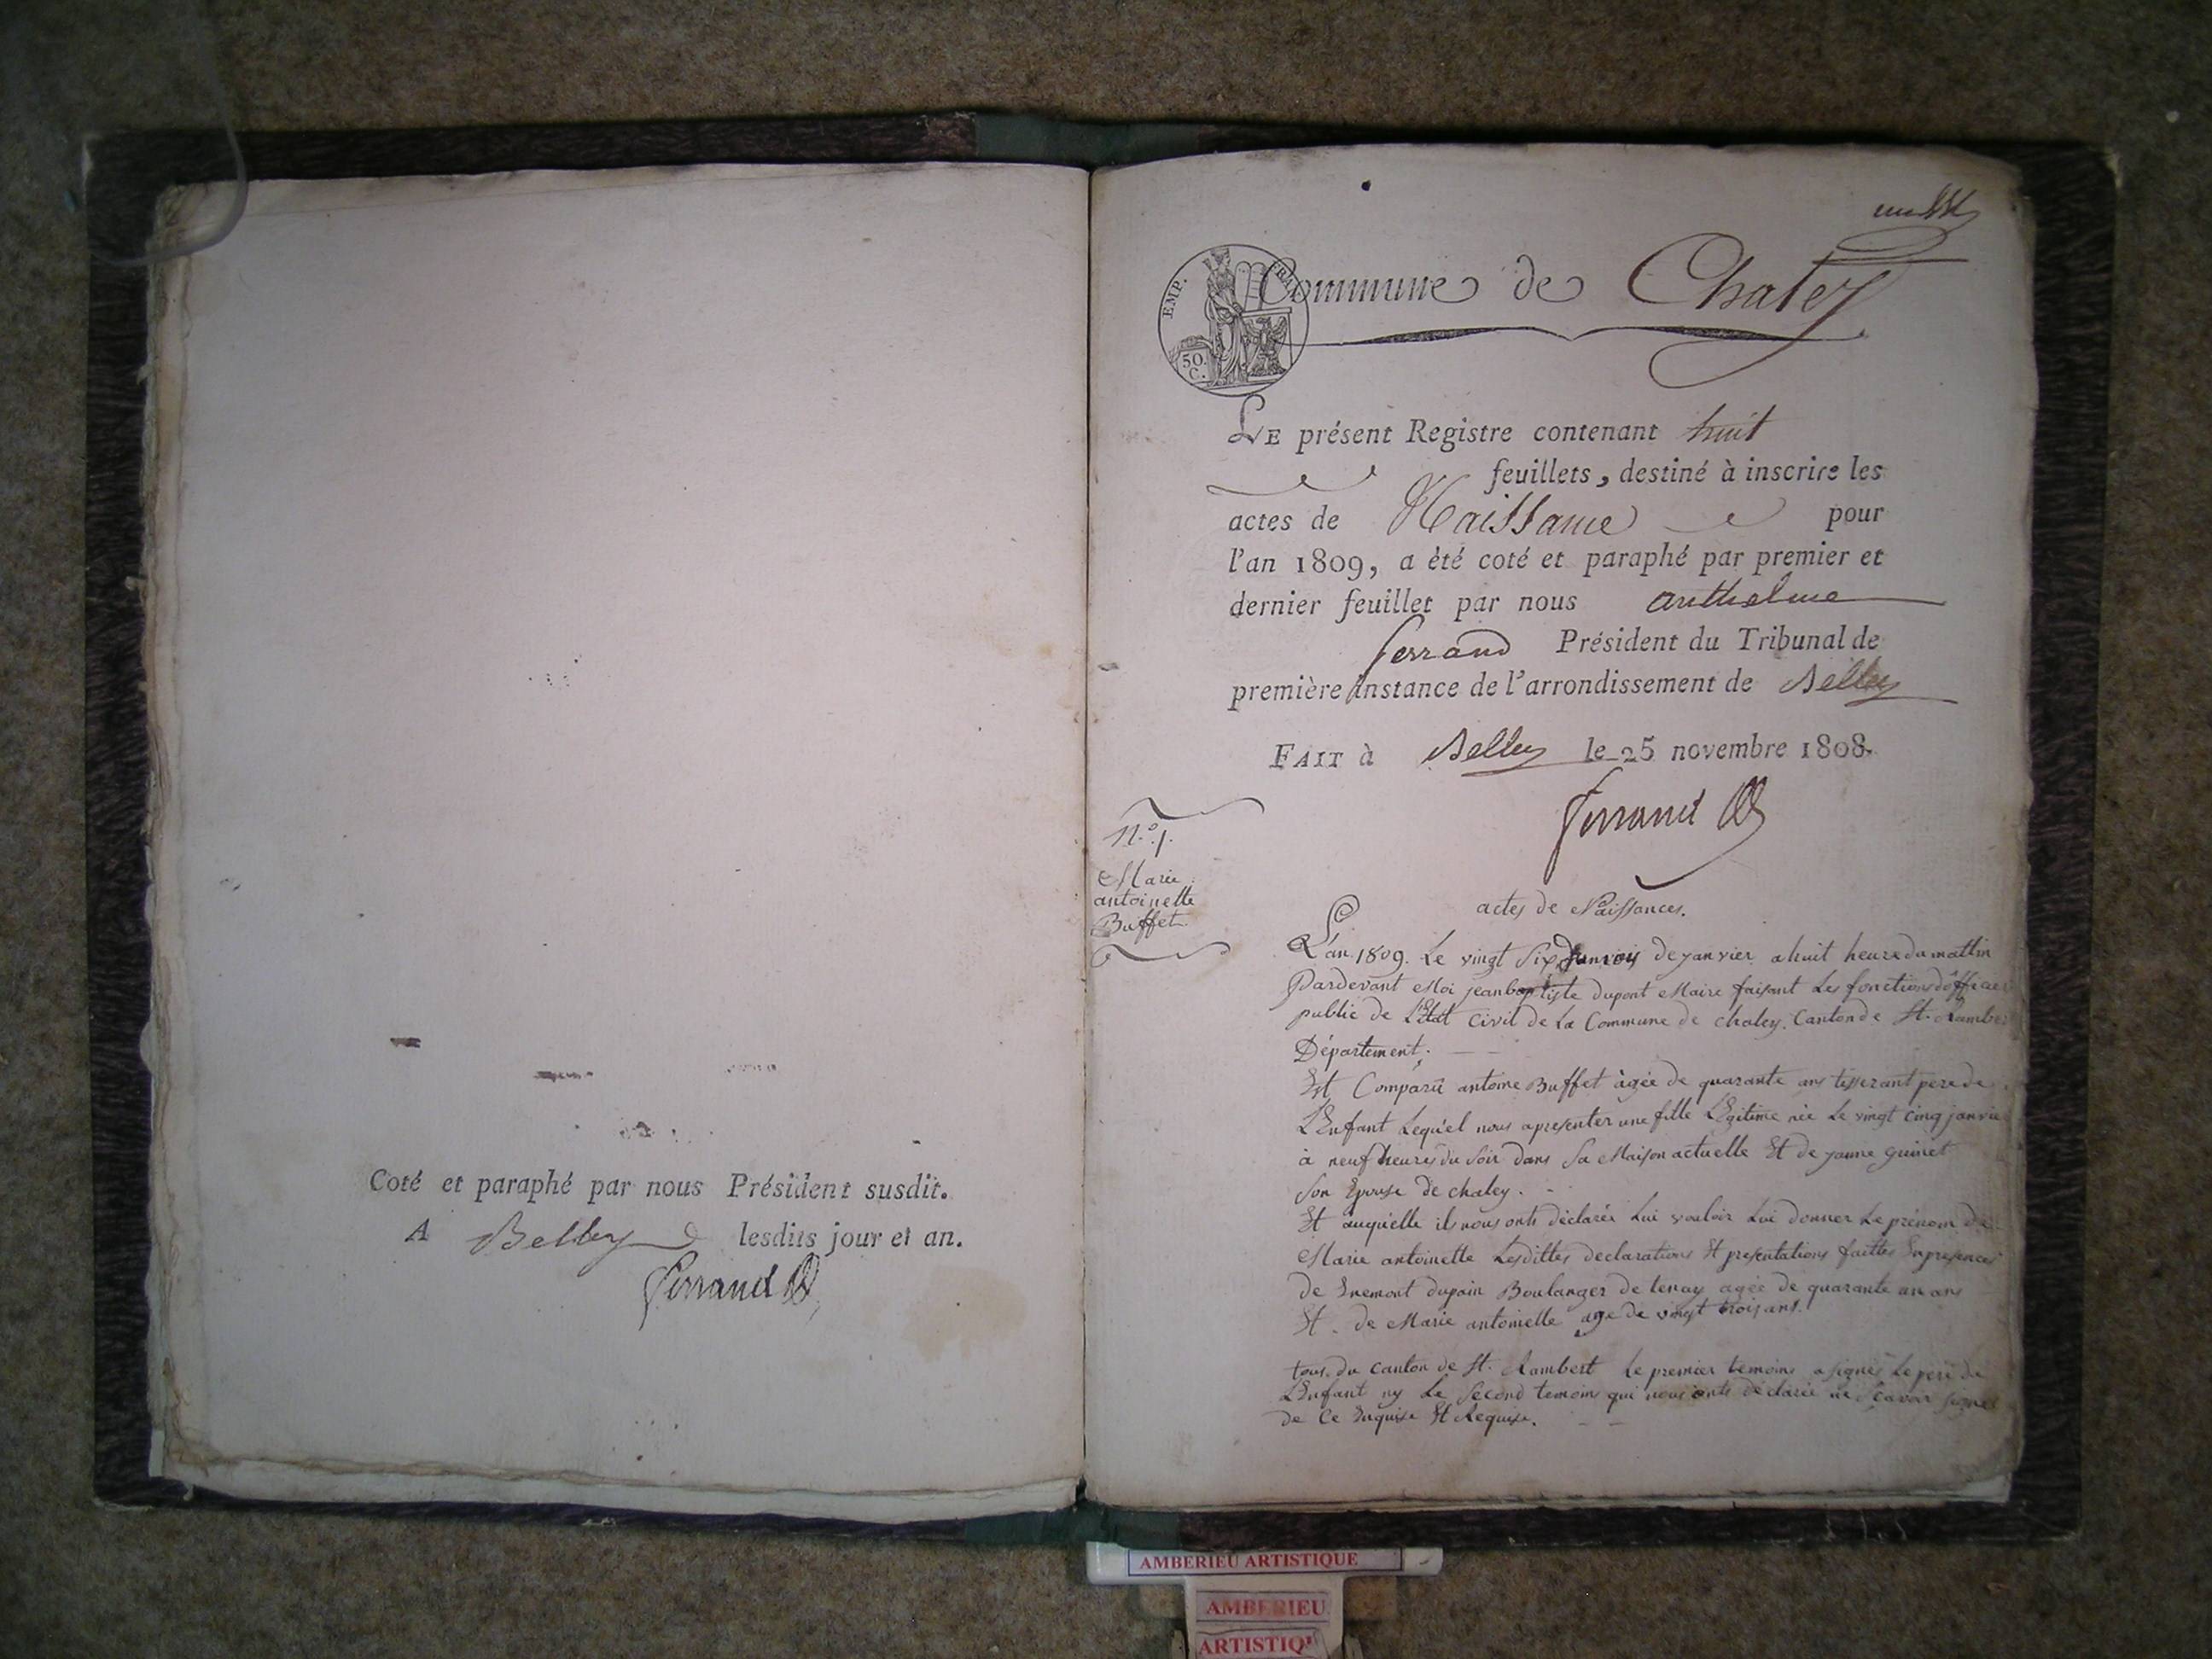 Coté et paraphé par nous Président susdit.
A Belley lesdits jour et an.
Ferrand
un
EMP. FRAN
50.
C.
Commune de Chaley
LE présent Registre contenant huit
feuillets, destiné à inscrire les
actes de Naissance pour
l'an 1809, a été coté et paraphé par premier et
dernier feuillet par nous anthelme
ferrand Président du Tribunal de
première instance de l'arrondissement de Belley
FAIT à Belley le 25 novembre 1808.
Ferrand
N.º 1.
Marie
antoinette
Buffet
actes de Naissances.
L'an 1809. Le vingt Six de janvier a huit heure du mattin
Pardevant Moi jean baptiste dupont Maire faisant Les fonctions d'officier
public de L'Etat Civil de La Commune de chaley. Canton de St. Rambe
Département.
Est Comparu antoine Buffet âgée de quarante ans tisserant pere de
L'Enfant Lequel nous apresenter une fille Légitime née Le vingt cinq janvie
à neuf heures du Soir dans Sa Maison actuelle Et de jeanne guinet
Son Epouse de chaley.
Et auquelle ils nous onts déclarée Lui vouloir Lui donner Le prénom de
Marie antoinette Lesdittes declarations Et presentations faittes En presences
de dupain Boulanger de tenay agée de quarante un ans
Et de Marie antoinette age de vingt trois ans.
tous du canton de St. Rambert Le premier temoins a signés Le pere de
L'Enfant ny Le Second temoins qui nous onts déclarée ne Scavoir signer
de Ce Enquise Et Requise.
AMBERIEU ARTISTIQUE
AMBERIEU
ARTISTIQU